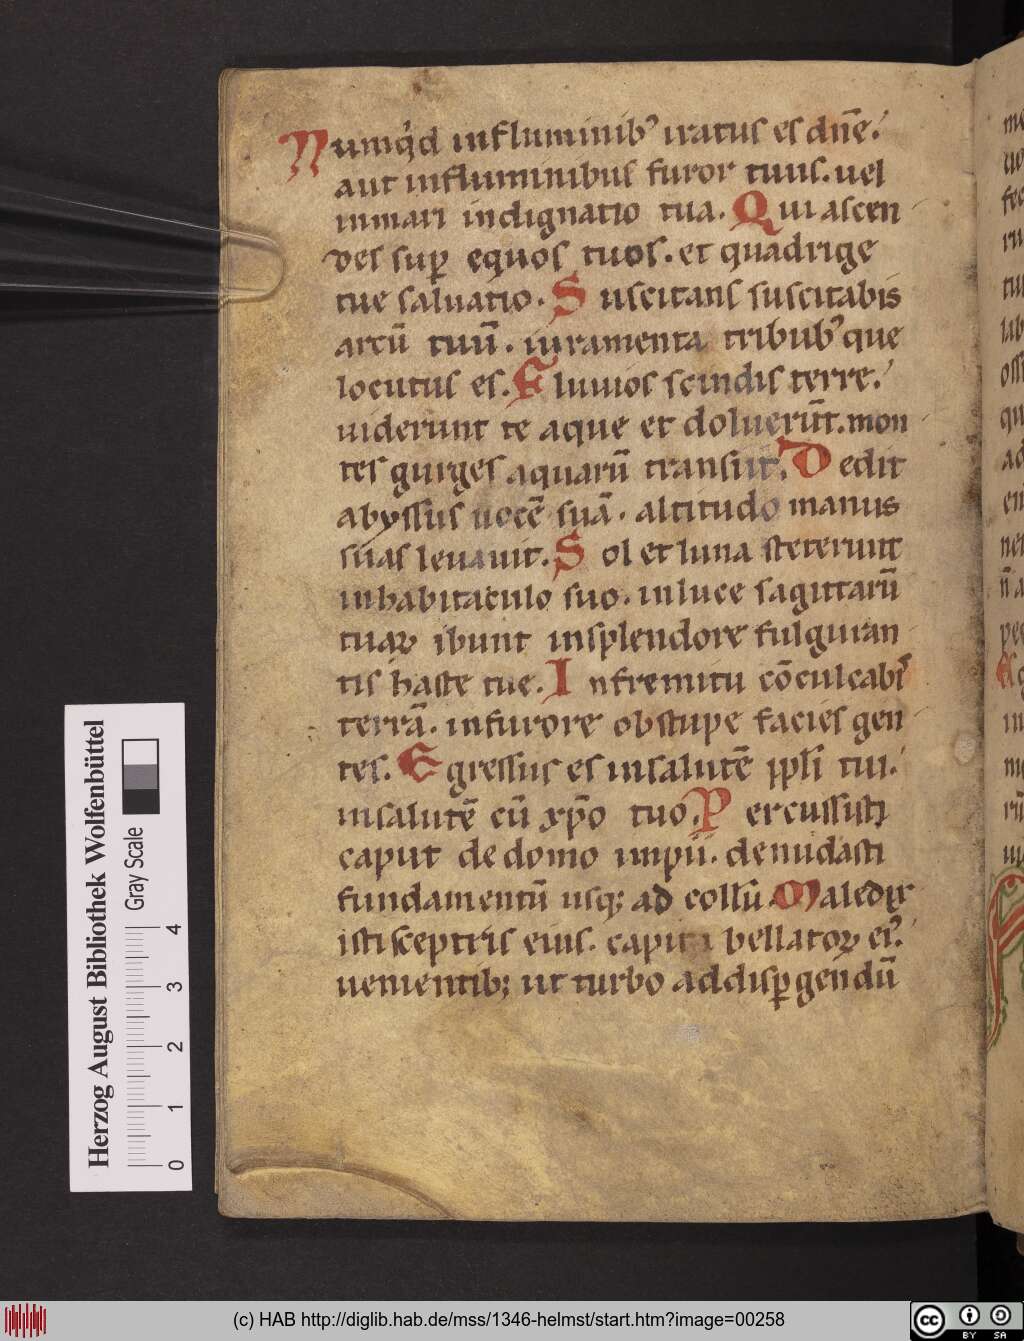 Numq̓d influminibꝰ iratus es dn̄e.
aut influminibus furor tuus. uel
inmari indignatio tua. Qui ascen
des suꝑ equos tuos. et quadrige
tue saluatio. Suscitans suscitabis
arcū tuū. iuramenta tribubꝰ que
locutus es. Fluuios scindis terre.
uiderunt te aque et doluerūt. mon
tes gurges aquarū transiit. Dedit
abyssus uocē suā. altitudo manus
suas leuauit. Sol et luna steterunt
inhabitaculo suo. inluce sagittarū
tuaꝝ ibunt insplendore fulguran
tis haste tue. Infremitu cōculcabis
terrā. infurore obstupe facies gen
tes. Egressus es insalutē ppl̄i tui.
insalutē cū xp̄o tuo. Percussisti
caput de domo impii. denudasti
fundamentū usq; ad collū. Maledix
isti sceptris eius. capiti bellatoꝝ eiꝰ.
uenientib; ut turbo addisꝑgendū
Herzog August Bibliothek Wolfenbüttel
Gray Scale
0 1 2 3 4
(c) HAB http://diglib.hab.de/mss/1346-helmst/start.htm?image=00258
cc BY SA